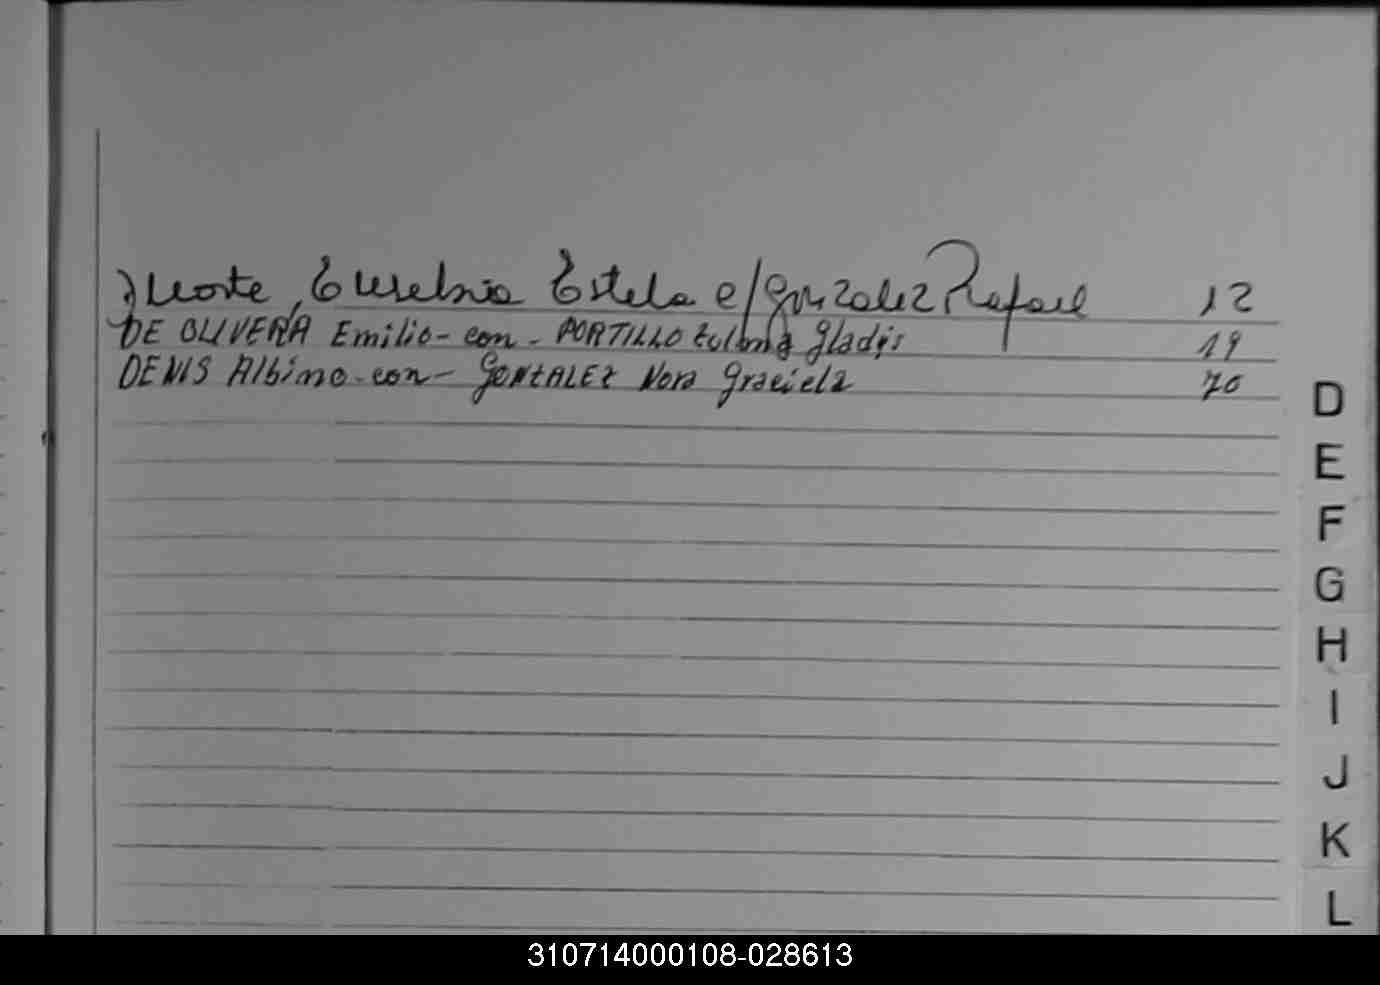 Duarte, Eusebia Estela c/ Gonzalez Rafael 12
DE OLIVERA Emilio - con - PORTILLO Zulema Gladys 19
DENIS Albino - con - GONZALEZ Nora Graciela 70
D
E
F
G
H
I
J
K
L
310714000108-028613